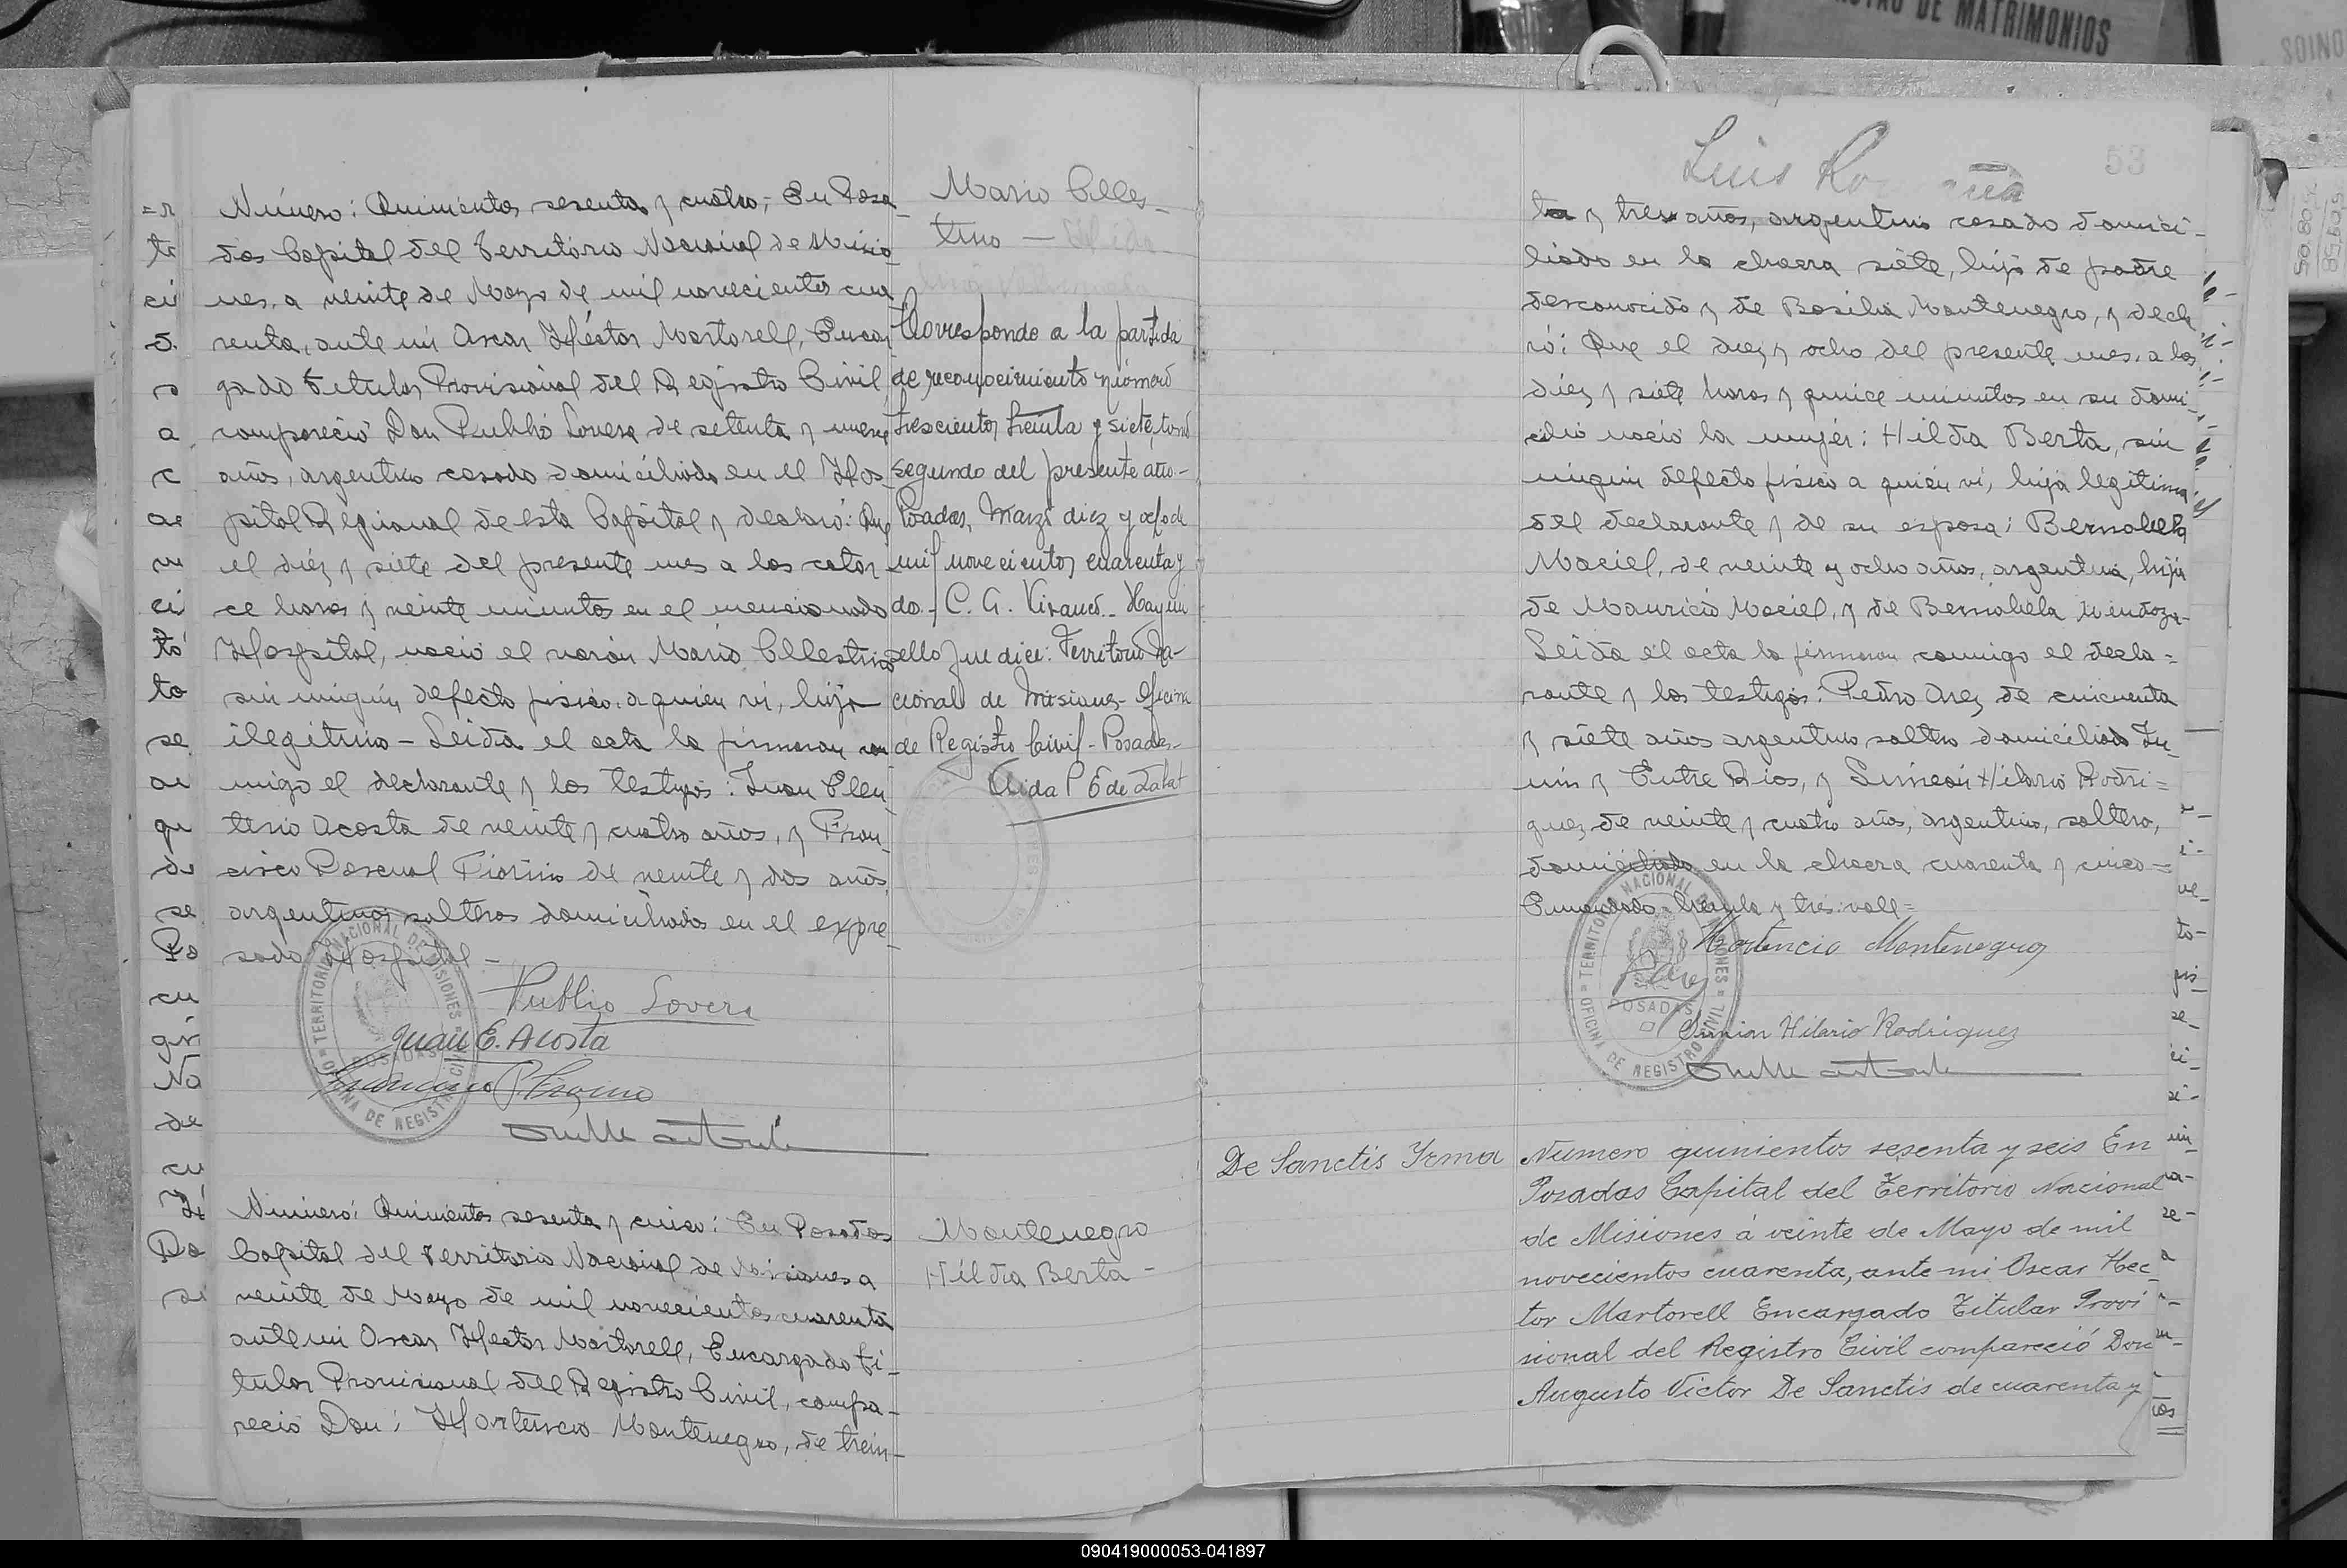 RO DE MATRIMONIOS
Número: Quinientos sesenta y cuatro; En Posa-
das Capital del Territorio Nacional de Misio-
nes, a veinte de Mayo de mil novecientos cua-
renta, ante mí Oscar Héctor Martorell, Encar-
gado Titular Provisional del Registro Civil,
compareció Don Publio Lovera de setenta y nueve
años, argentino casado domiciliado en el Hos-
pital Regional de esta Capital y declaró: Que
el diez y siete del presente mes a las cator-
ce horas y veinte minutos en el mencionado
Hospital, nació el varón Mario Cellestino
sin ningún defecto físico, a quien ví, hijo
ilegítimo - Leida el acta la firmaron con
migo el declarante y los testigos: Juan Eleu-
terio Acosta de veinte y cuatro años, y Fran-
cisco Pascual Fiorino de veinte y dos años
argentinos solteros domiciliados en el expre-
sado Hospital -
Publio Lovera
Juan E. Acosta
Mario Celles-
tino -
Corresponde a la partida
de reconocimiento número
trescientos treinta y siete, tomo
segundo del presente año.-
Posadas, Marzo diez y ocho de
mil novecientos cuarenta y
do.- C. G. Vivanco.- Hay un
sello que dice: Territorio Na-
cional de Misiones- Oficina
de Registro Civil - Posadas.-
Número: Quinientos sesenta y cinco: En Posadas
Capital del Territorio Nacional de Misiones a
veinte de Mayo de mil novecientos cuarenta
ante mi Oscar Hector Martorell, Encargado Ti-
tular Provisional del Registro Civil, compa-
reció Don: Hortencio Montenegro, de trein-
Montenegro
Hilda Berta -
Luis
53
ta y tres años, argentino casado domici-
liado en la chacra siete, hijo de padre
desconocido y de Basilia Montenegro, y decla
ró: Que el diez y ocho del presente mes, a las
diez y siete horas y quince minutos en su domi-
cilio nació la mujer: Hilda Berta, sin
ningún defecto físico a quién ví, hija legítima
del declarante y de su esposa: Bernabela
Maciel, de veinte y ocho años, argentina, hija
de Mauricio Maciel, y de Bernabela Mendoza-
Leida el acta la firmaron conmigo el decla=
rante y los testigos: Pedro Arez de cincuenta
y siete años argentino soltero domiciliado Ju-
nin y Entre Rios, y Simeón Hilario Rodri=
guez de veinte y cuatro años, argentino, soltero,
domiciliado en la chacra cuarenta y cinco=
Enmendado treinta y tres: vale=
Hortencio Montenegro
Simion Hilario Rodriguez
TERRITORIO NACIONAL DE MISIONES
OFICINA DE REGISTRO CIVIL
POSADAS
De Sanctis Irma
Número quinientos sesenta y seis En
Posadas Capital del Territorio Nacional
de Misiones á veinte de Mayo de mil
novecientos cuarenta, ante mi Oscar Hec-
tor Martorell Encargado Titular Provi
sional del Registro Civil compareció Don
Augusto Victor De Sanctis de cuarenta y
090419000053-041897